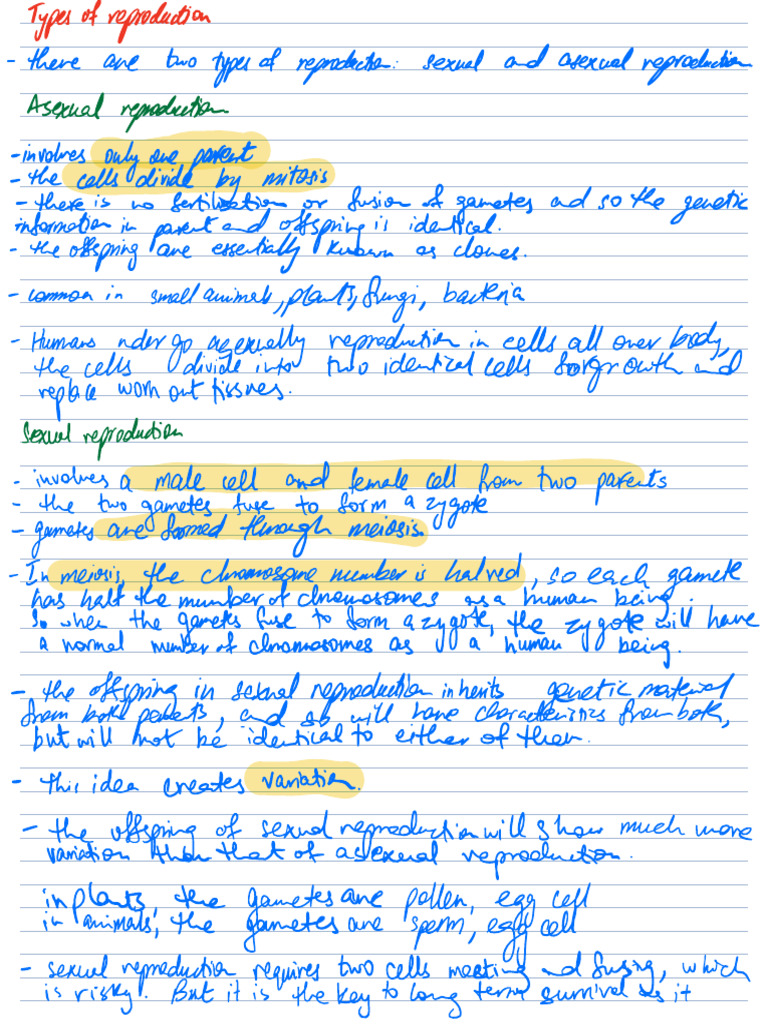 Types of reproduction
- there are two types of reproduction: sexual and asexual reproduction
Asexual reproduction
- involves only one parent
- the cells divide by mitosis
- there is no fertilisation or fusion of gametes and so the genetic
information in parent and offspring is identical.
- the offspring are essentially known as clones.
- common in small animals, plants, fungi, bacteria
- Humans ndergo asexually reproduction in cells all over body,
the cells divide into two identical cells for growth and
replace worn out tissues.
Sexual reproduction
- involves a male cell and female cell from two parents
- the two gametes fuse to form a zygote
- gametes are formed through meiosis.
- In meiosis, the chromosome number is halved, so each gamete
has half the number of chromosomes as a human being.
So when the gametes fuse to form a zygote, the zygote will have
a normal number of chromosomes as a human being.
- the offspring in sexual reproduction inherits genetic material
from both parents, and so will have characteristics from both,
but will not be identical to either of them.
- this idea creates variation.
- the offspring of sexual reproduction will show much more
variation than that of asexual reproduction.
in plants, the gametes are pollen, egg cell
in animals, the gametes are sperm, egg cell
- sexual reproduction requires two cells meeting and fusing, which
is risky. But it is the key to long term survival as it